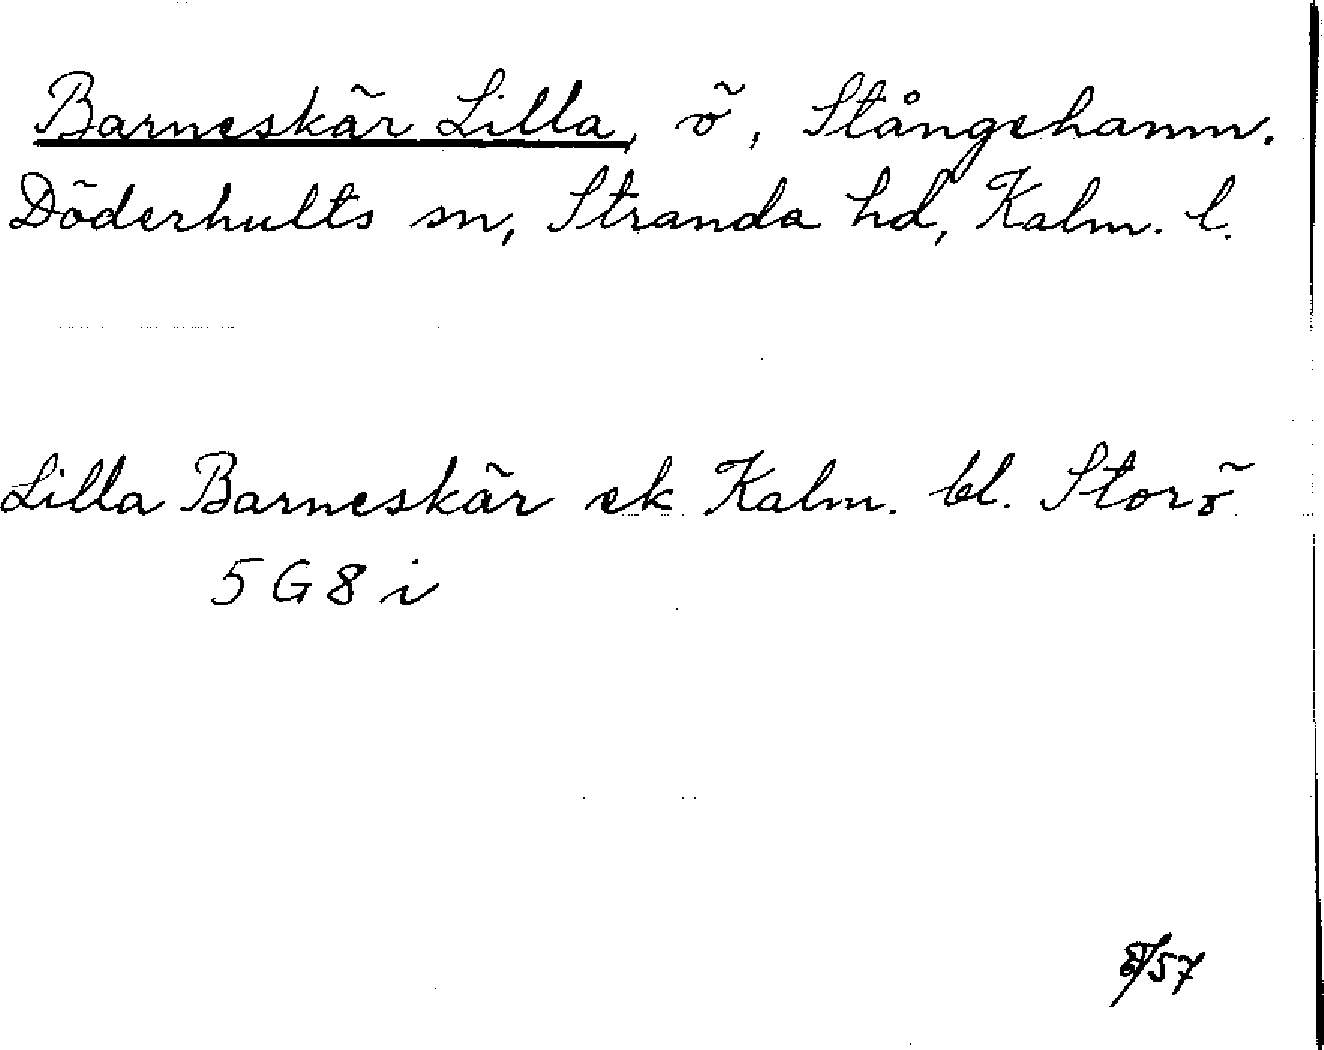 Barneskär Lilla, ö, Stångehamn.
Döderhults sn, Stranda hd, Kalm. l.
Lilla Barneskär ek Kalm. bl. Storö
5 G 8 i